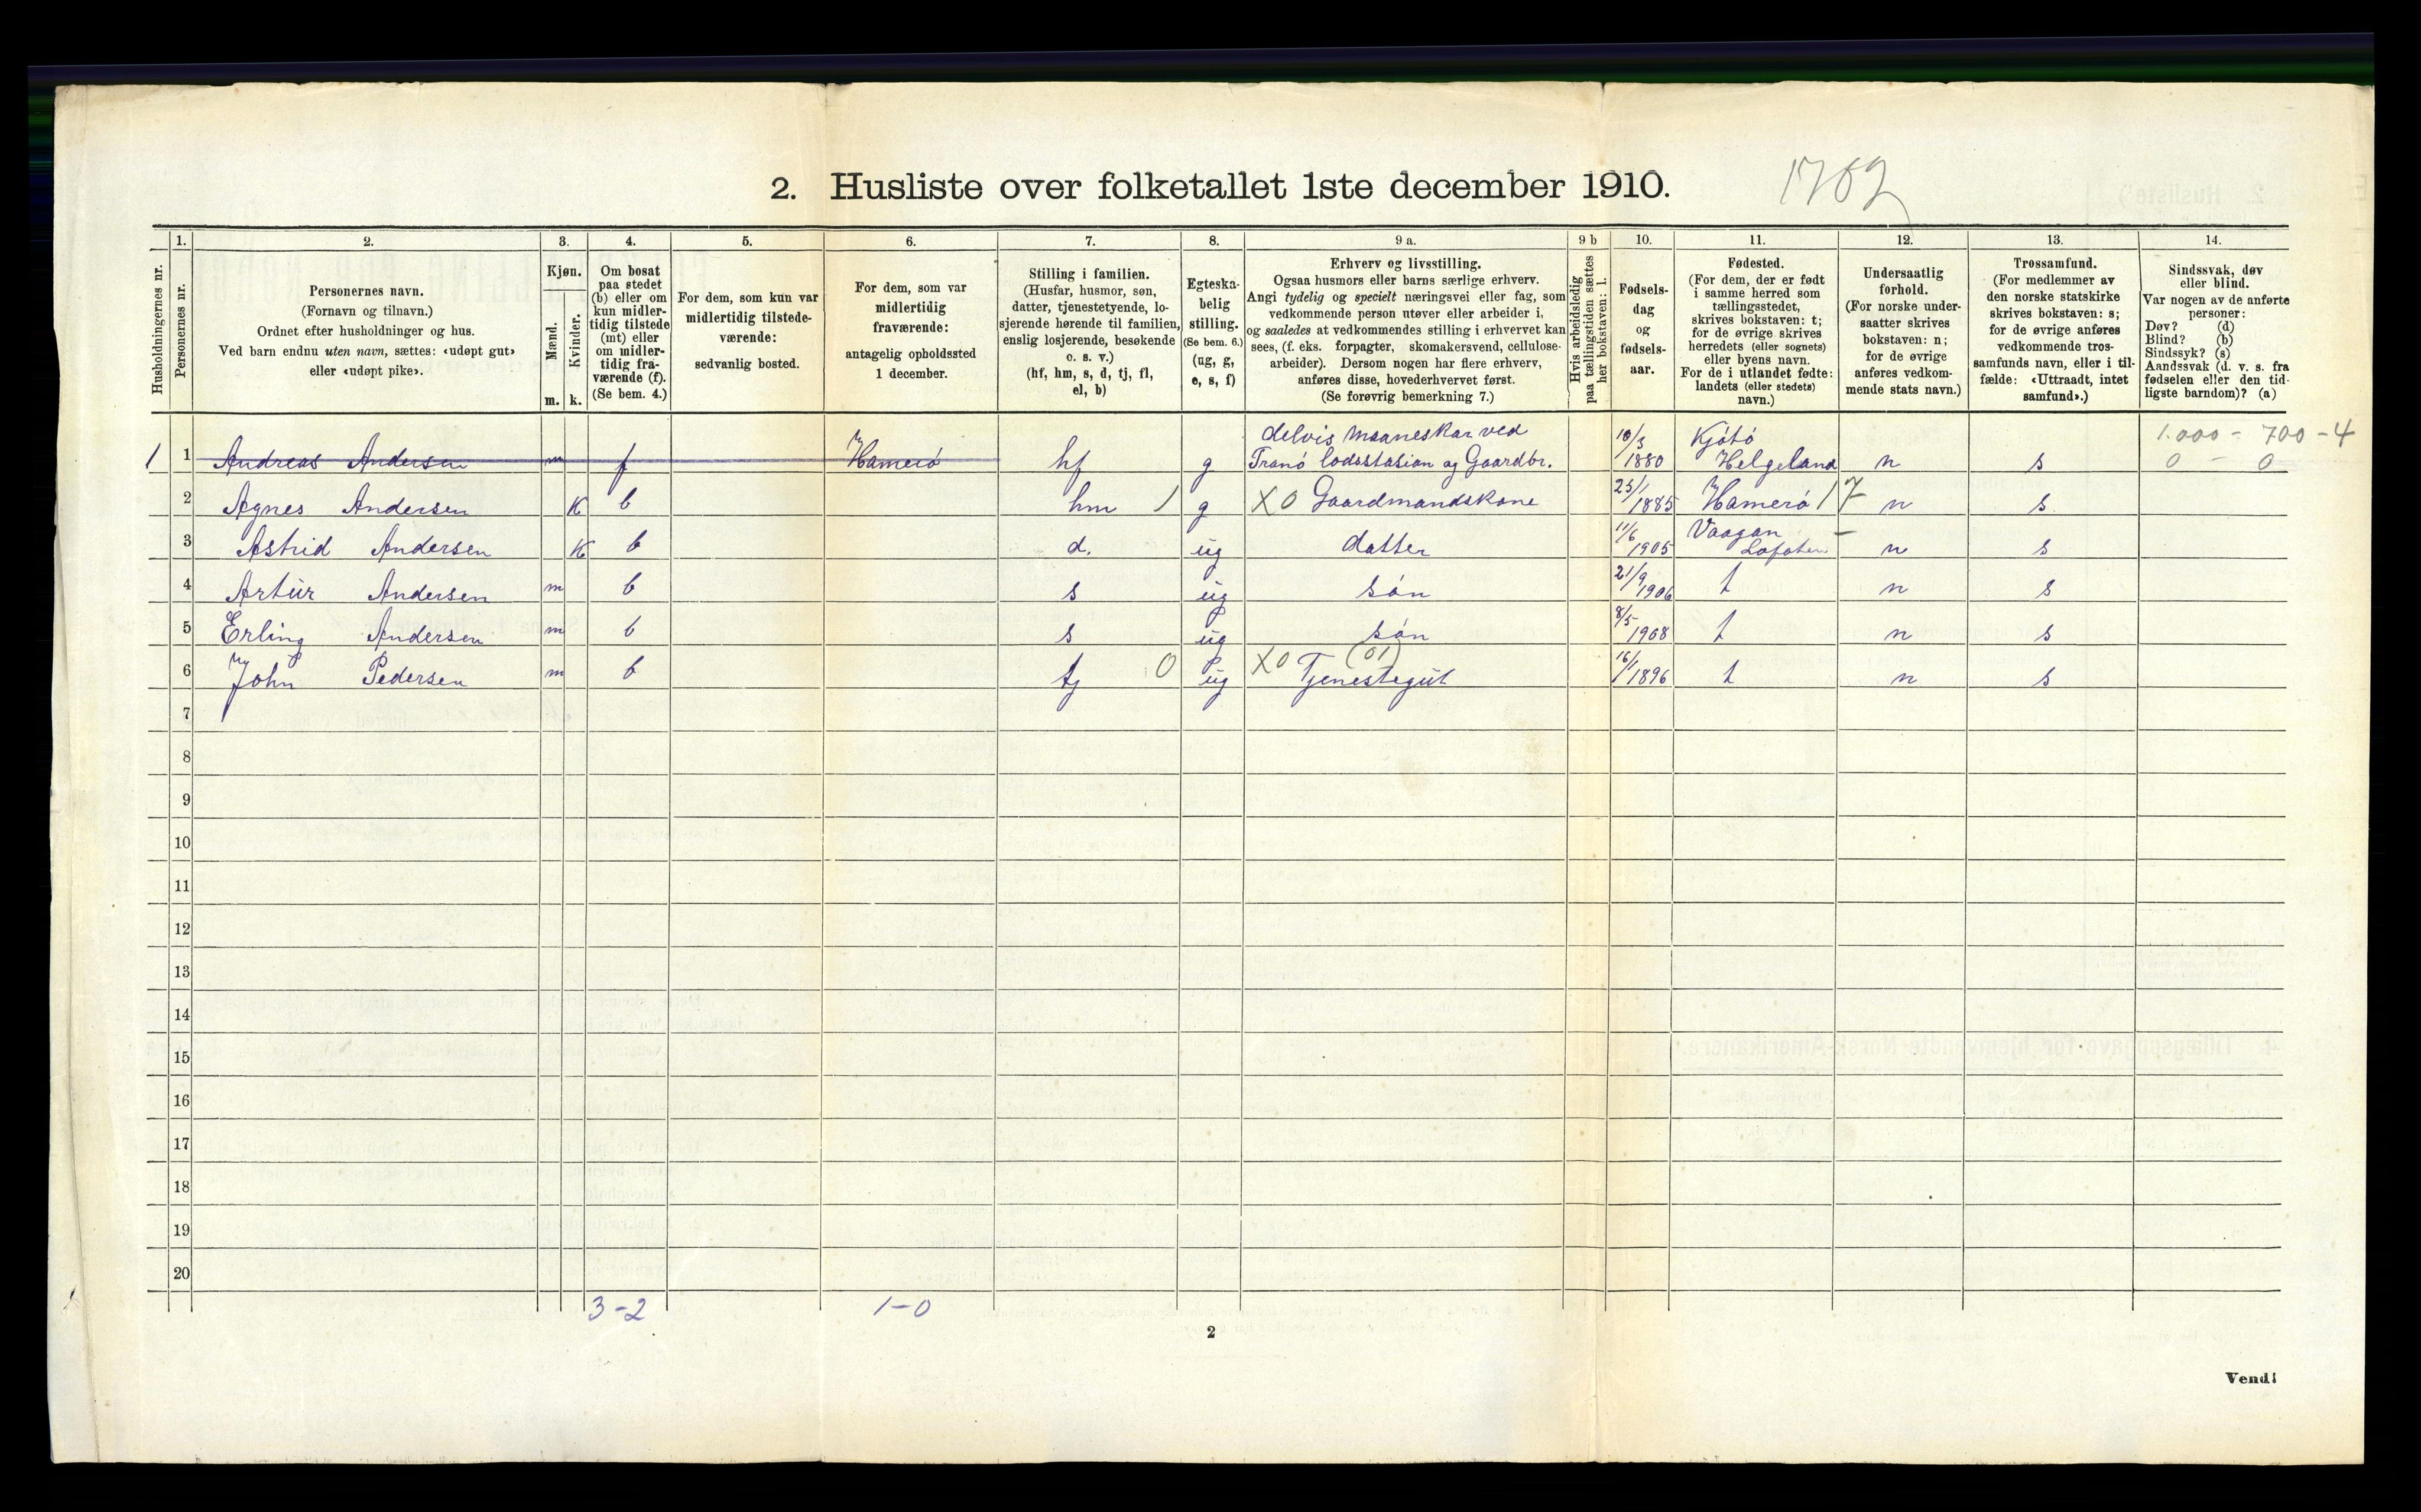 2. Husliste over folketallet 1ste december 1910. 1702
1. 2. 3. 4. 5. 6. 7. 8. 9 a. 9 b 10. 11. 12. 13. 14.
Husholdningernes nr.
Personernes nr.
Personernes navn.
(Fornavn og tilnavn.)
Ordnet efter husholdninger og hus.
Ved barn endnu uten navn, sættes: «udøpt gut»
eller «udøpt pike».
Kjøn.
Mænd.
Kvinder.
m. k.
Om bosat
paa stedet
(b) eller om
kun midler-
tidig tilstede
(mt) eller
om midler-
tidig fra-
værende (f).
(Se bem. 4.)
For dem, som kun var
midlertidig tilstede-
værende:
sedvanlig bosted.
For dem, som var
midlertidig
fraværende:
antagelig opholdssted
1 december.
Stilling i familien.
(Husfar, husmor, søn,
datter, tjenestetyende, lo-
sjerende hørende til familien,
enslig losjerende, besøkende
o. s. v.)
(hf, hm, s, d, tj, fl,
el, b)
Egteska-
belig
stilling.
(Se bem. 6.)
(ug, g,
e, s, f)
Erhverv og livsstilling.
Ogsaa husmors eller barns særlige erhverv.
Angi tydelig og specielt næringsvei eller fag, som
vedkommende person utøver eller arbeider i,
og saaledes at vedkommendes stilling i erhvervet kan
sees, (f. eks. forpagter, skomakersvend, cellulose-
arbeider). Dersom nogen har flere erhverv,
anføres disse, hovederhvervet først.
(Se forøvrig bemerkning 7.)
Hvis arbeidsledig
paa tællingstiden sættes
her bokstaven: l.
Fødsels-
dag
og
fødsels-
aar.
Fødested.
(For dem, der er født
i samme herred som
tællingsstedet,
skrives bokstaven: t;
for de øvrige skrives
herredets (eller sognets)
eller byens navn.
For de i utlandet fødte:
landets (eller stedets)
navn.)
Undersaatlig
forhold.
(For norske under-
saatter skrives
bokstaven: n;
for de øvrige
anføres vedkom-
mende stats navn.)
Trossamfund.
(For medlemmer av
den norske statskirke
skrives bokstaven: s;
for de øvrige anføres
vedkommende tros-
samfunds navn, eller i til-
fælde: «Uttraadt, intet
samfund».)
Sindssvak, døv
eller blind.
Var nogen av de anførte
personer:
Døv? (d)
Blind? (b)
Sindssyk? (s)
Aandssvak (d. v. s. fra
fødselen eller den tid-
ligste barndom)? (a)
delvis maaneskar ved 10/3 Kjøtø 1.000 - 700 - 4
1 1 Andreas Andersen m f Hamerø hf g Tranø lodsstasion og Gaardbr. 1880 Helgeland n s 0 - 0
2 Agnes Andersen K b hm 1 g X0 Gaardmandskone 23/1 1885 Hamerø 17 n s
3 Astrid Andersen K b d. ug datter 11/6 1905 Vaagan Lofoten - n s
4 Artur Andersen m b s ug søn 21/9 1906 t n s
5 Erling Andersen m b s ug søn 8/5 1908 t n s
6 John Pedersen m b tj 0 ug X0 Tjenestegut (01) 16/1 1896 t n s
7
8
9
10
11
12
13
14
15
16
17
18
19
20
3-2 1-0
2
Vend!